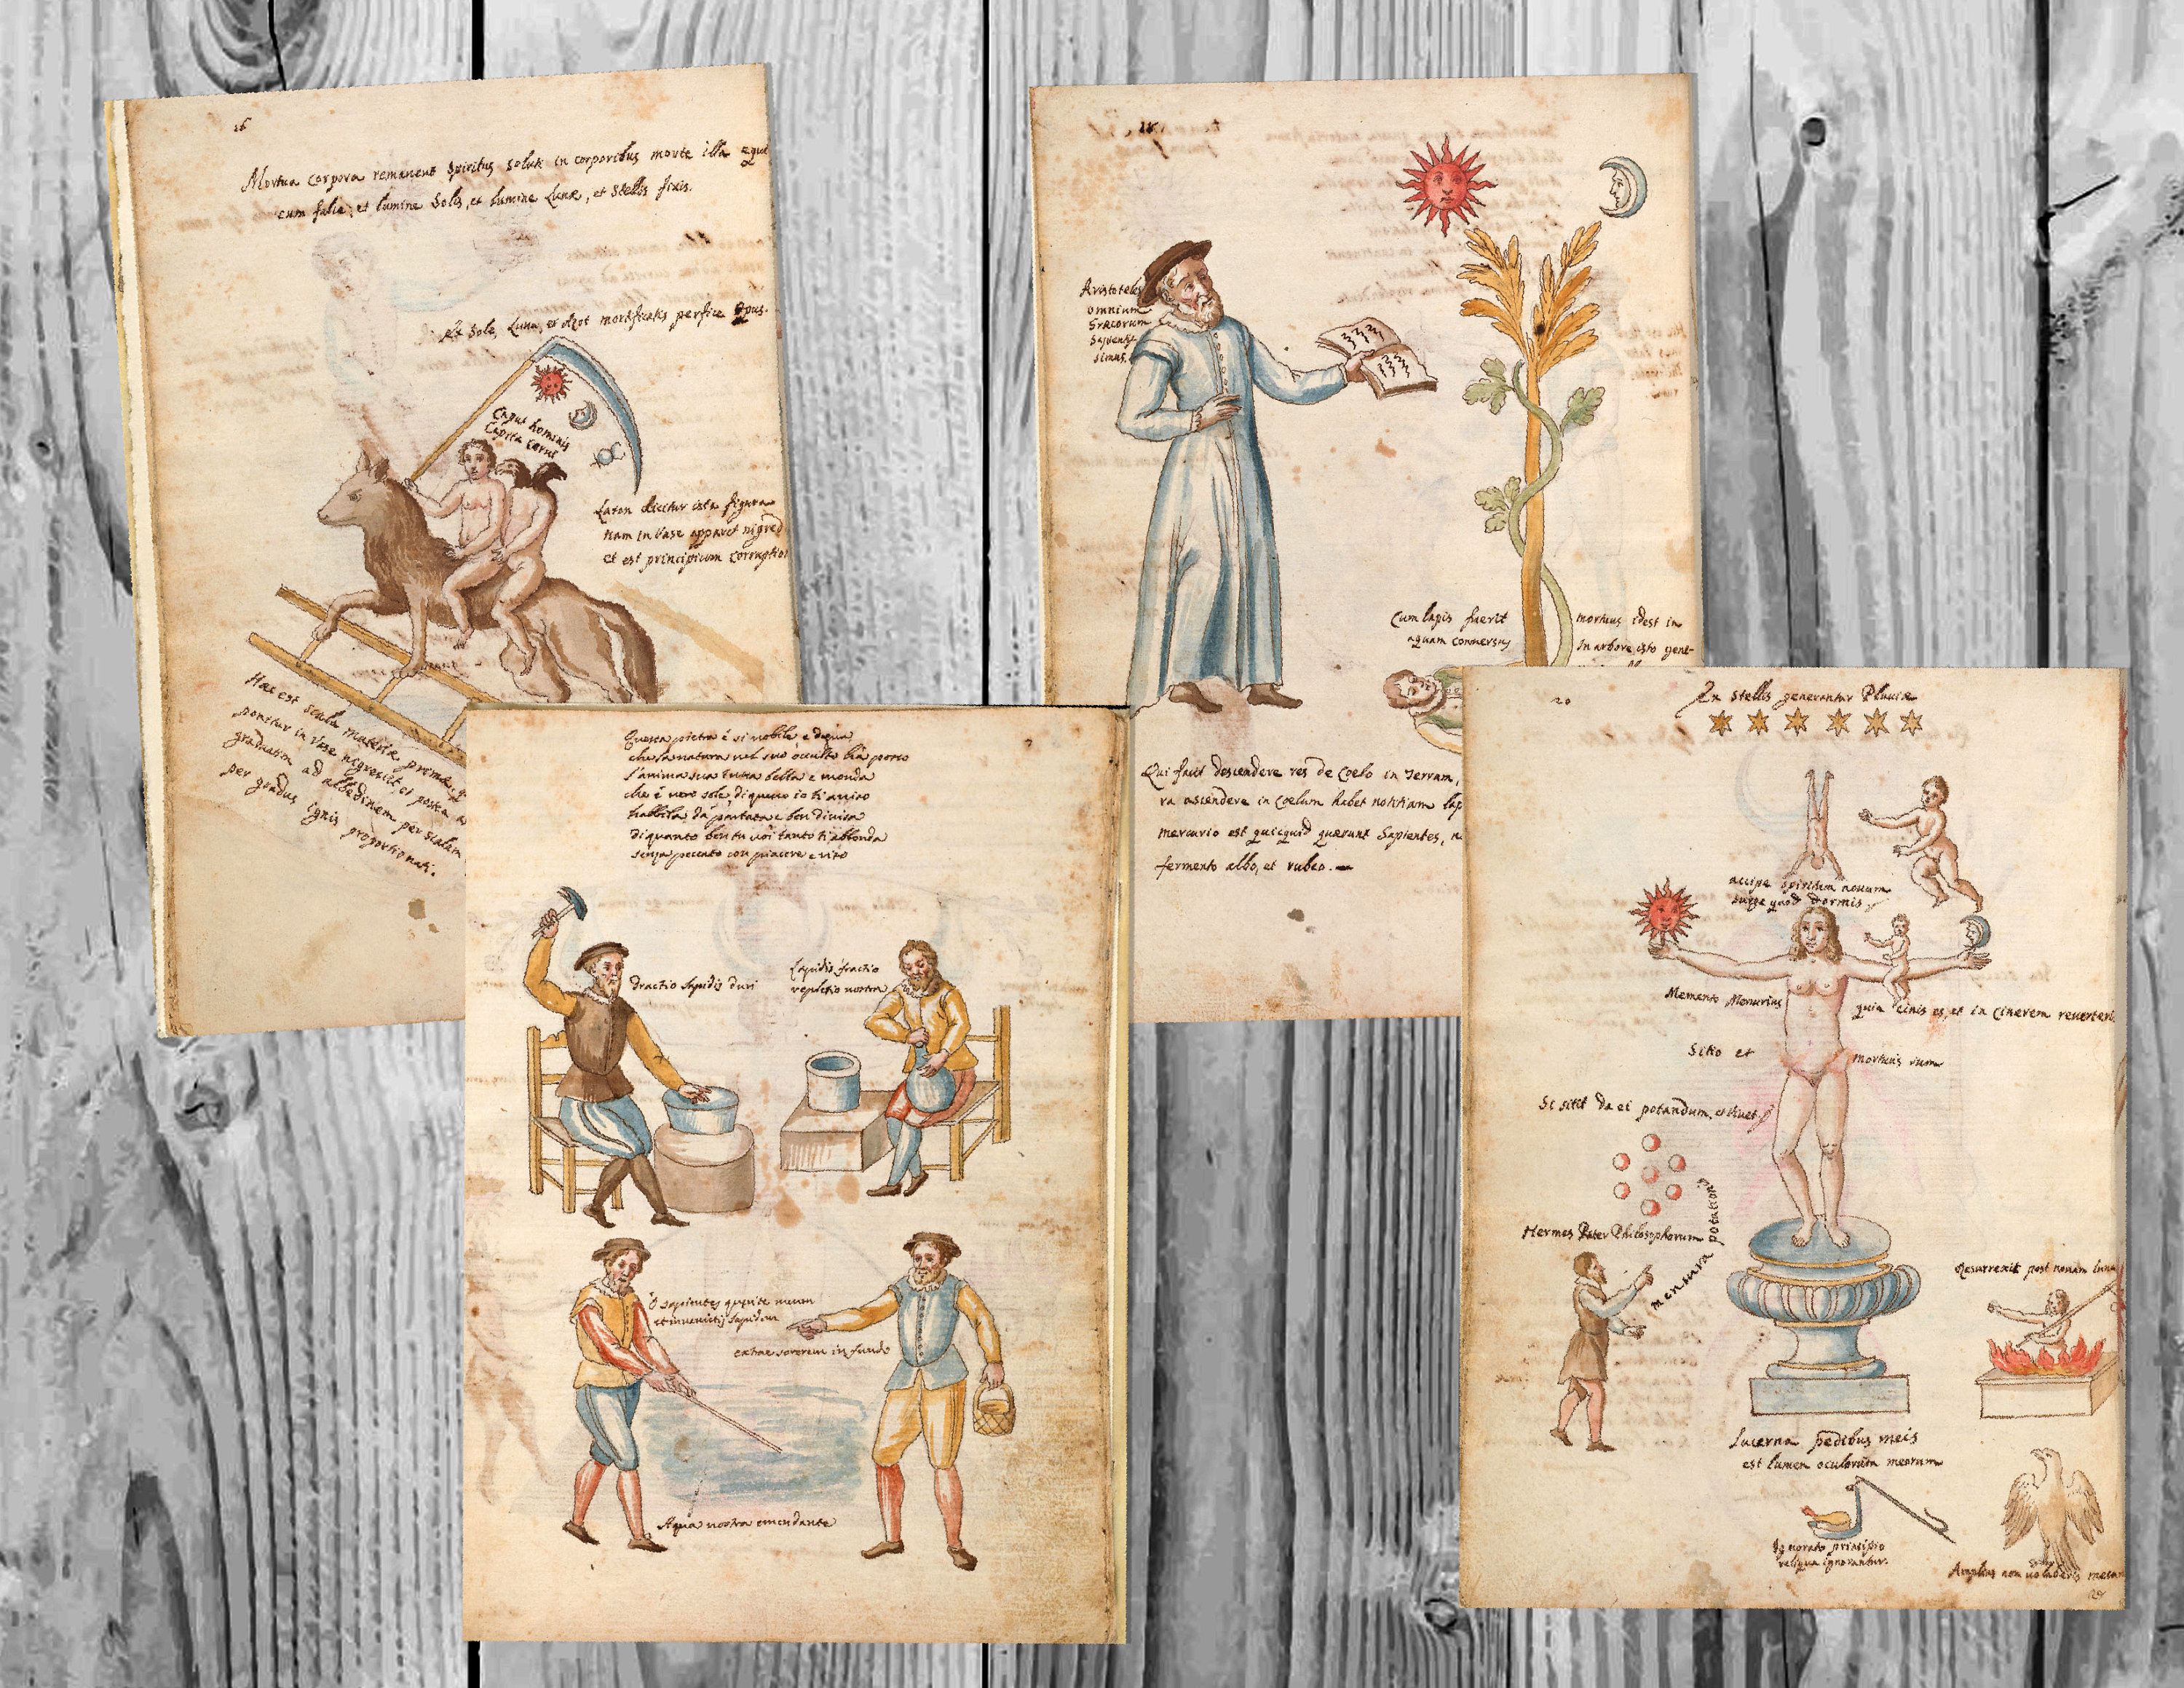 16
Mortua corpora remanent spiritus soluti in corporibus morte illa equi
cum falce, et lumine Solis, et lumine Lunæ, et Stellis fixis.
Ex Sole, Luna, et Azot mortificatis perfice Opus.
Caput hominis
Capita corui
Laton dicitur ista figura
nam in Vase apparet nigred
et est principium corruptio
Hæc est scala materiæ primæ, q
ponitur in Vase nigrescit, et postea a
graduatim ad albedinem per scalam
per gradus ignis proportionati.
18
Aristoteles
omnium
Græcorum
Sapientis
simus.
Cum lapis fuerit
aquam conuersus
mortuus idest in
in arbore isto gene-
Qui facit descendere res de Coelo in Terram,
ra ascendere in Coelum habet notitiam lap
mercurio est quicquid quærunt Sapientes, n
fermento albo, et rubeo.
Questa pietra è si nobile e degna
che la natura nel suo occulto hà
l'anima sua tutta bella e monda
che è vero sole, di questo io ti auiso
habbila da partata e ben diuisa
di quanto ben tu uoi tanto ti abbonda
senza peccato con piacere e riso
Fractio lapidis duri
Lapidis fractio
repletio nostra
O sapientes querite meum
et inuenietis lapidem
extrae sororem in fundo
Aqua nostra emendante
20
Ex Stellis generantur Pluuiæ
accipe spiritum nouum
surge quod dormis
Memento Mercurius
quia cinis es, et in cinerem reuerteri
Sitio et
mortuus sum
Si sitit da ei potandum, et uiuet
Hermes Pater Philosophorum
mensura potationis
Resurrexit post nouam luna
Lucerna pedibus meis
est lumen oculorum meorum
Ignorato principio
reliqua ignorantur.
Amplius non uolaberis mecu